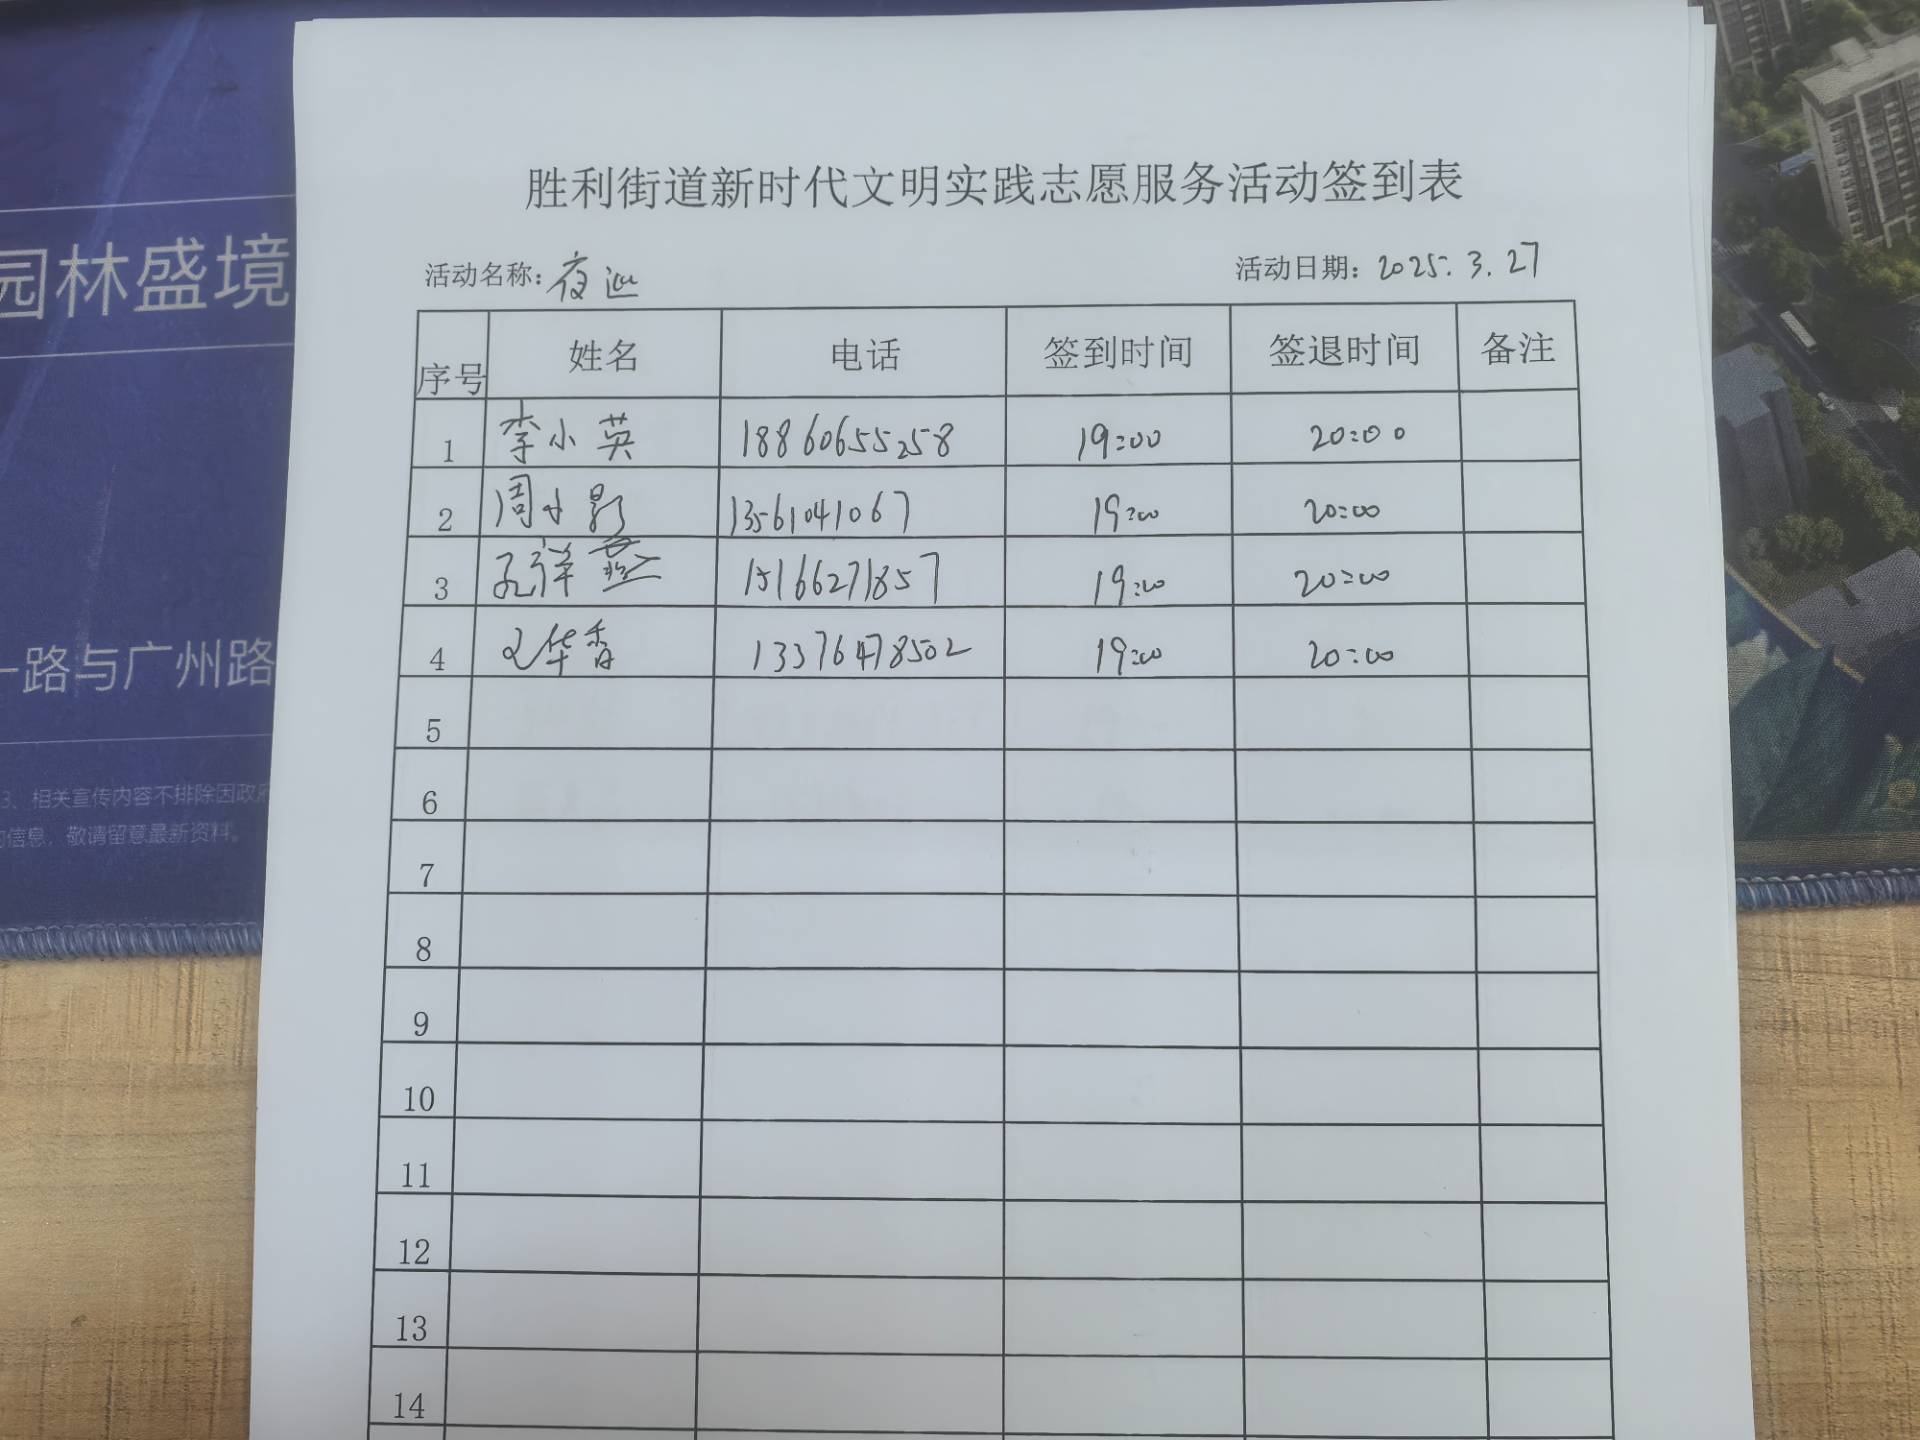 胜利街道新时代文明实践志愿服务活动签到表
活动名称：夜巡 活动日期：2025.3.27
序号 姓名 电话 签到时间 签退时间 备注
1 李小英 18860655258 19:00 20:00
2 周小影 13561041067 19:00 20:00
3 孔祥燕 15166271857 19:00 20:00
4 华香 13376478502 19:00 20:00
5
6
7
8
9
10
11
12
13
14
园林盛境
一路与广州路
3、相关宣传内容不排除因政府
的信息，敬请留意最新资料。